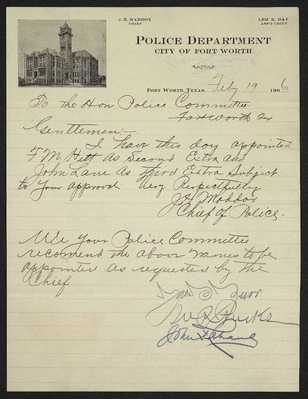 J. H. MADDOX
CHIEF
LEM S. DAY
ASS'T CHIEF
POLICE DEPARTMENT
CITY OF FORT WORTH
FORT WORTH, TEXAS, Feby 19 1906
To the Hon Police Committee
Fortworth Tx
Gentlemen:-
I have this day appointed
F M Hett as Second Extra and
John Lane as Third Extra Subject
to your approval Very Respectfully
J H Maddox
Chief of Police.
We Your Police Committee
recommend the above names to be
appointed as requested by the
Chief